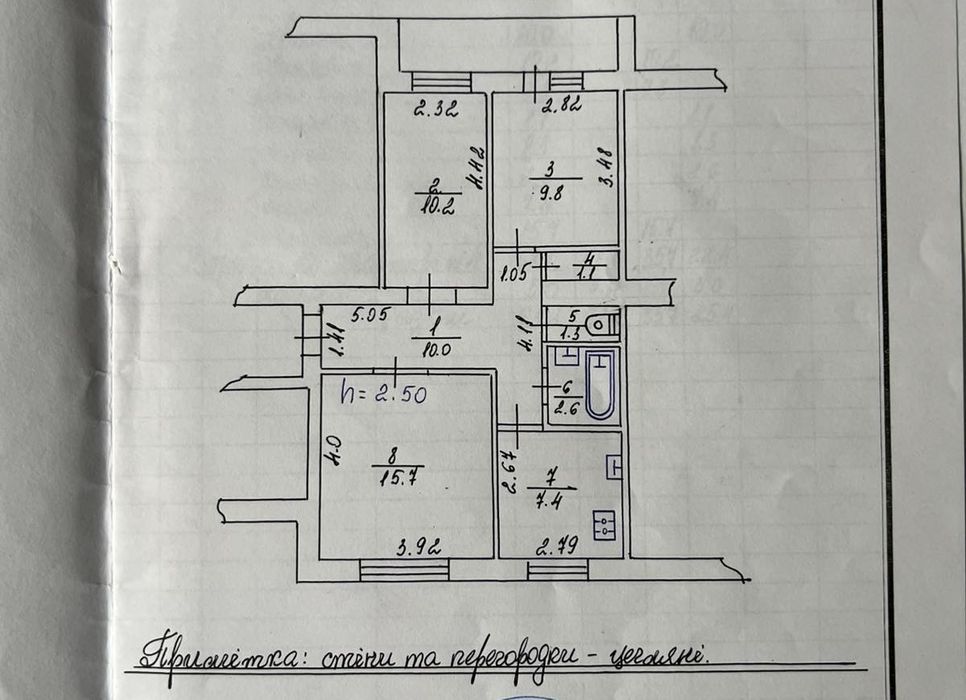 2.32
2.82
4.42
3.48
2
10.2
3
9.8
1.05
4
1.1
5.05
1.41
1
10.0
4.11
5
1.3
h= 2.50
6
2.6
4.0
8
15.7
2.67
7
7.4
3.92
2.79
Примітка: стіни та перегородки - цегляні.